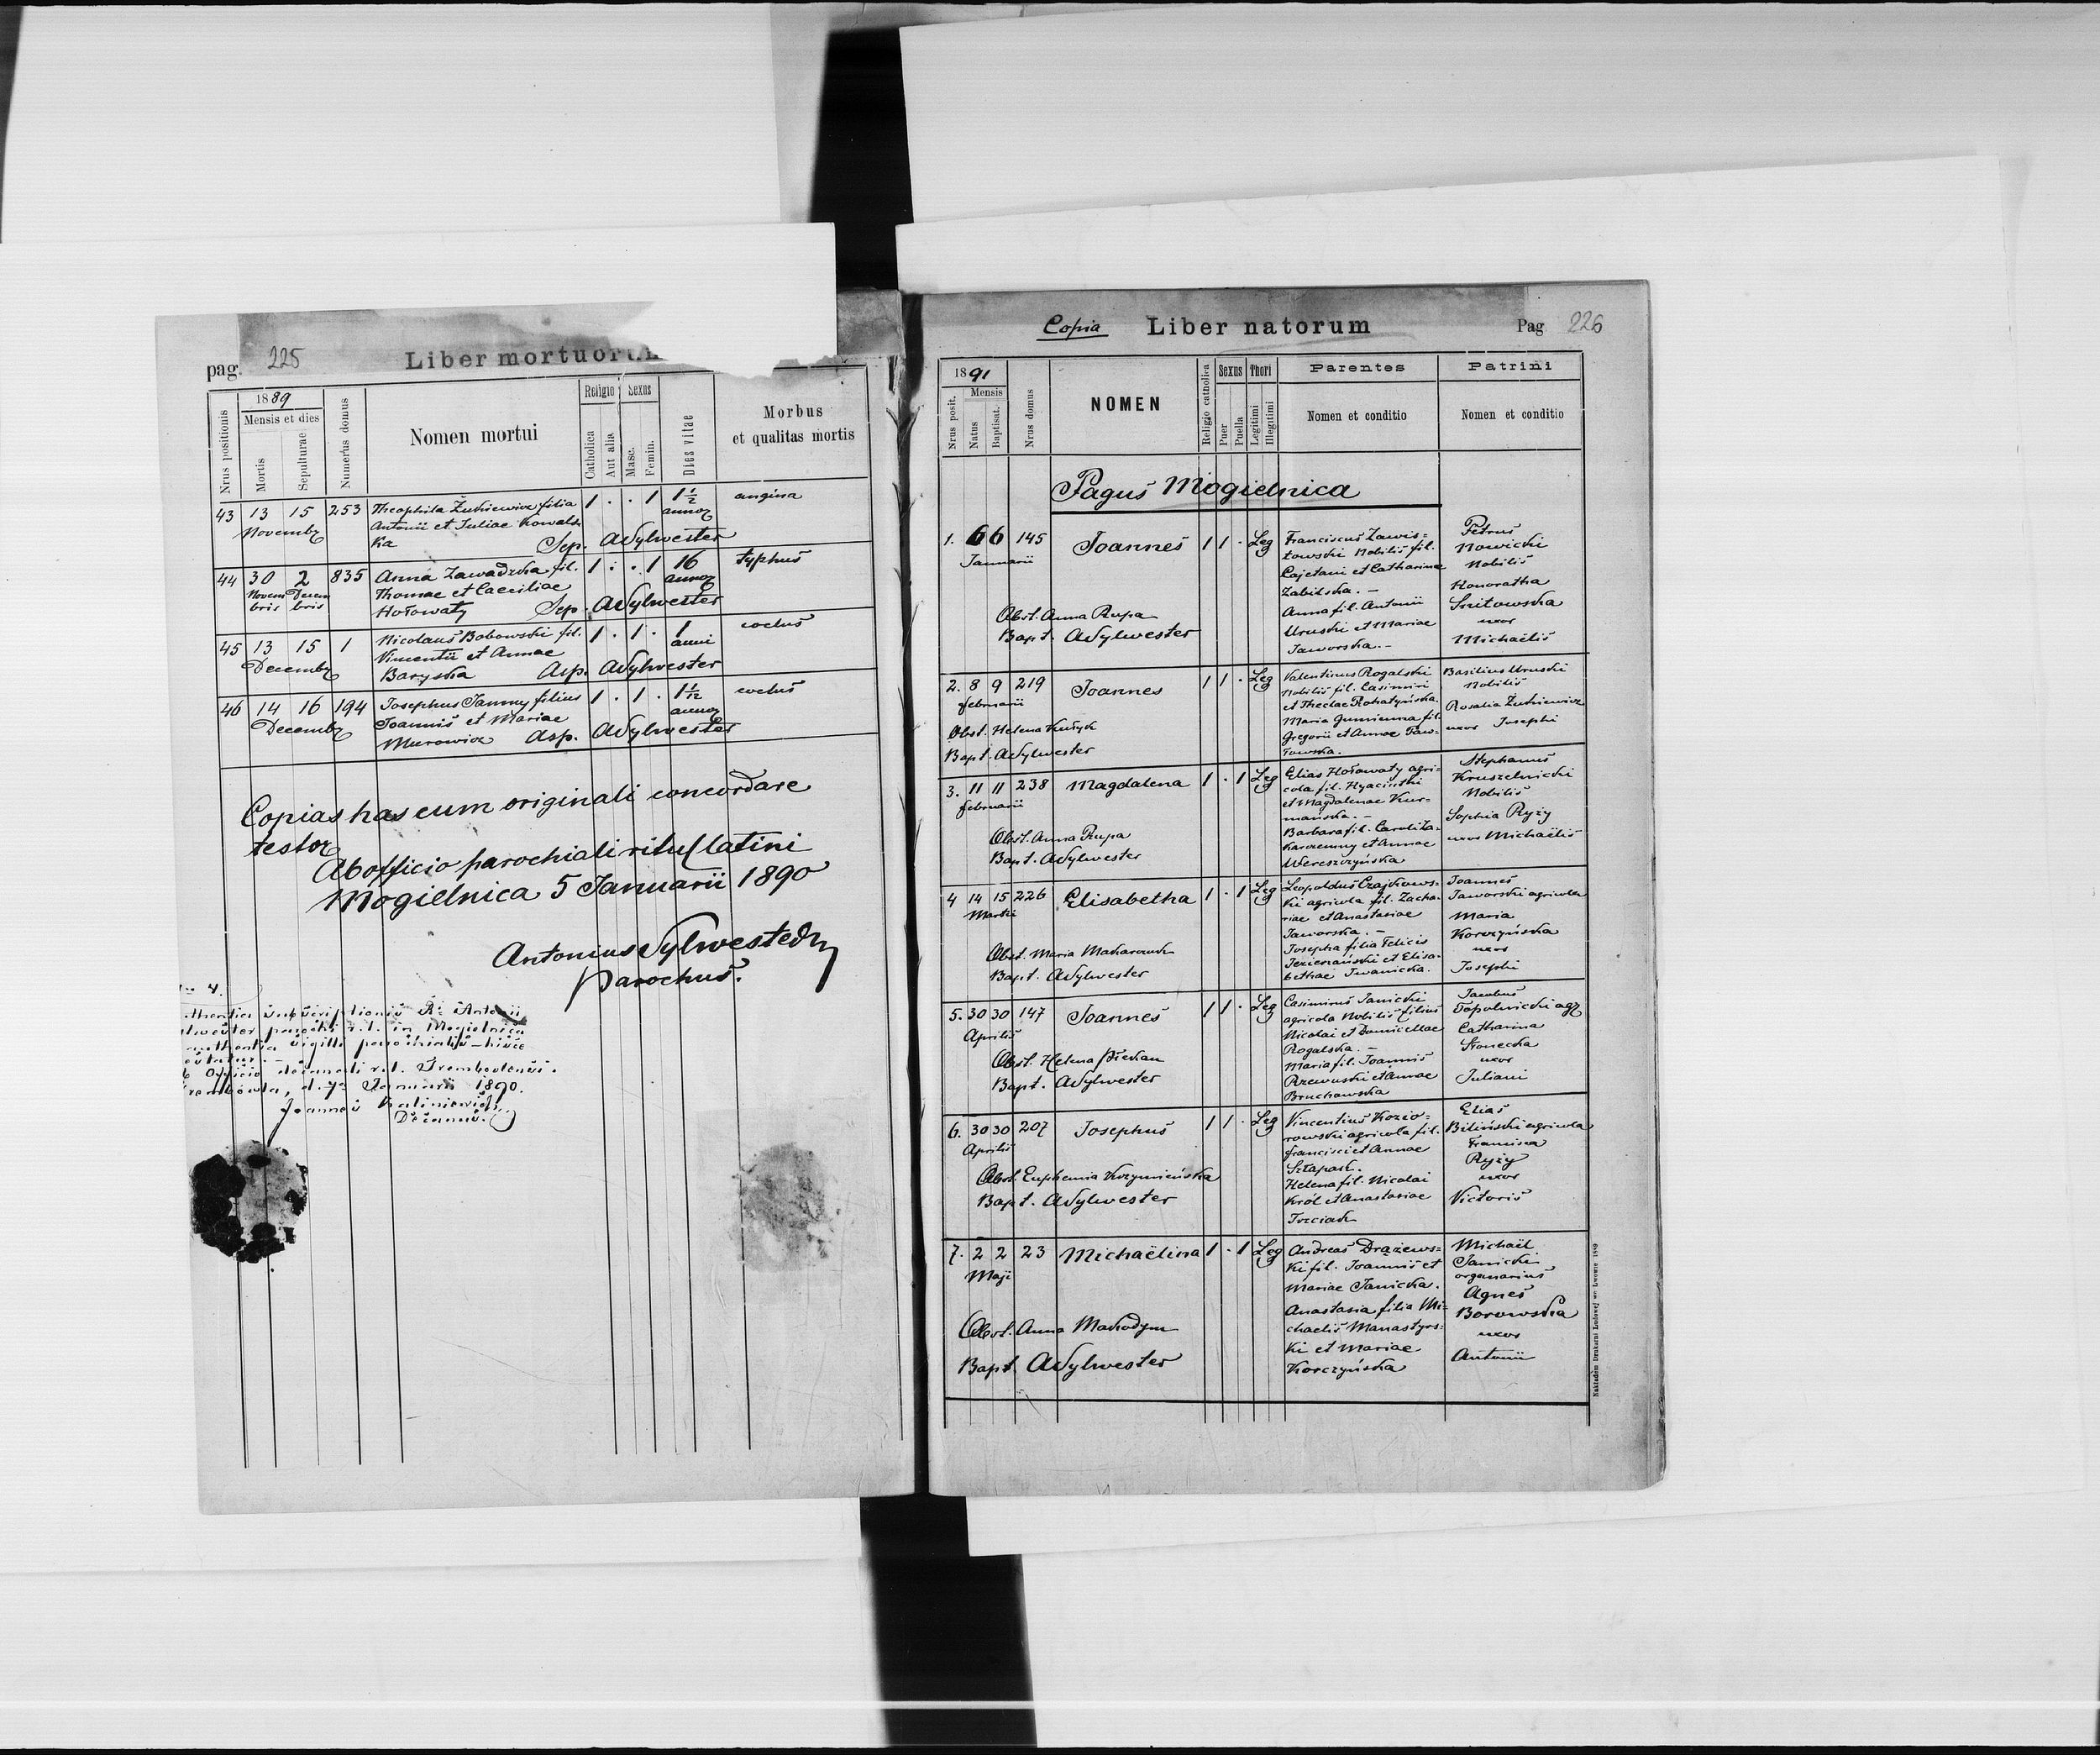 pag. 225 Liber mortuoru
1889
Mensis et dies
Nrus positionis
Mortis
Sepulturae
Numerus domus
Nomen mortui
Religio
Catholica
Aut alia
Sexus
Masc.
Femin.
Dies vitae
Morbus
et qualitas mortis
43 13 15 253 Theophila Żukiewicz filia 1 . . 1 1½ angina
Novembr Antonii et Juliae Kowals- annor
ka Sep. ASylwester
44 30 2 835 Anna Zawadzka fil. 1 . . 1 16 typhus
Novem Decem Thomae et Caeciliae annor
bris bris Hołowaty Sep. ASylwester
45 13 15 1 Nicolaus Bobowski fil. 1 . 1 . 1 coctus
Decembr Vincentii et Annae anni
Baryska Asp. ASylwester
46 14 16 194 Josephus Jamny filius 1 . 1 . 1 1/12 coctus
Decembr Joannis et Mariae annor
Murowicz Asp. ASylwester
Copias has cum originali concordare
testor
Ab officio parochiali ritus latini
Mogielnica 5 Januarii 1890
Antonius Sylwester
parochus.
4.
subscriptionis Antonii
parochi r.l. in Mogielnica
sigilli parochialis
Officio decanali r.l. Trembovlensi.
Januarii 1890.
Joannes Kaliniewicz
Decanus.
Copia Liber natorum Pag 226
1891
Mensis
Nrus posit.
Natus
Baptisat.
Nrus domus
NOMEN
Religio catholica
Sexus
Puer
Puella
Thori
Legitimi
Illegitimi
Parentes
Nomen et conditio
Patrini
Nomen et conditio
Pagus Mogielnica
1. 6 6 145 Joannes 1 1 . Leg Franciscus Zawis- Petrus
Januarii towski Nobilis fil. Nowicki
Cajetani et Catharina Nobilis
Zabilska. - Honoratha
Obst. Anna Rupa Anna fil. Antonii Snitowska
Bapt. ASylwester Uruski et Mariae uxor
Jaworska. - Michaëlis
2. 8 9 219 Joannes 1 1 . Leg Valentinus Rogalski Basilius Uruski
februarii Nobilis fil. Casimiri Nobilis
et Theclae Rohatyńska. Rosalia Żukiewicz
Obst. Helena Maria Gumienna fil. uxor Josephi
Bapt. ASylwester Gregorii et Annae Paw-
łowska.
3. 11 11 238 Magdalena 1 . 1 Leg Elias Hołowaty agri- Stephanus
februarii cola fil. Hyacinthi Kruszelnicki
et Magdalenae Kur- Nobilis
mańska. - Sophia Ryży
Obst. Anna Rupa Barbara fil. Caroli Ka- uxor Michaëlis
Bapt. ASylwester et Annae
Wereszczyńska
4 14 15 226 Elisabetha 1 . 1 Leg Leopoldus Czajkows- Joannes
Martii ki agricola fil. Zacha- Jaworski agricola
riae et Anastasiae Maria
Jaworska. - Korczyńska
Obst. Maria Josepha filia Felicis uxor
Bapt. ASylwester Jezierzański et Elisa- Josephi
bethae Iwanicka.
5. 30 30 147 Joannes 1 1 . Leg Casimirus Janicki Jacobus
Aprilis agricola Nobilis filius Topolnicki agr
Nicolai et Domicellae Catharina
Rogalska. - Słonecka
Obst. Helena Maria fil. Joannis uxor
Bapt. ASylwester Rzewuski et Annae Juliani
Bruchowska
6. 30 30 207 Josephus 1 1 . Leg Vincentius Kozio- Elias
Aprilis rowski agricola fil. Biliński agricola
Francisci et Annae Francisca
Obst. Euphemia Szłapak. Ryży
Bapt. ASylwester Helena fil. Nicolai uxor
Król et Anastasiae Victoris
Trzciak
7. 2 2 23 Michaëlina 1 . 1 Leg Andreas Drażews- Michaël
Maji ki fil. Joannis et Janicki
Mariae Janicka. organarius
Anastasia filia Mi- Agnes
Obst. Anna Makodym chaelis Manastyrs- Borowska
ki et Mariae uxor
Bapt. ASylwester Korczyńska Antonii
Nakładem Drukarni Ludowej we Lwowie